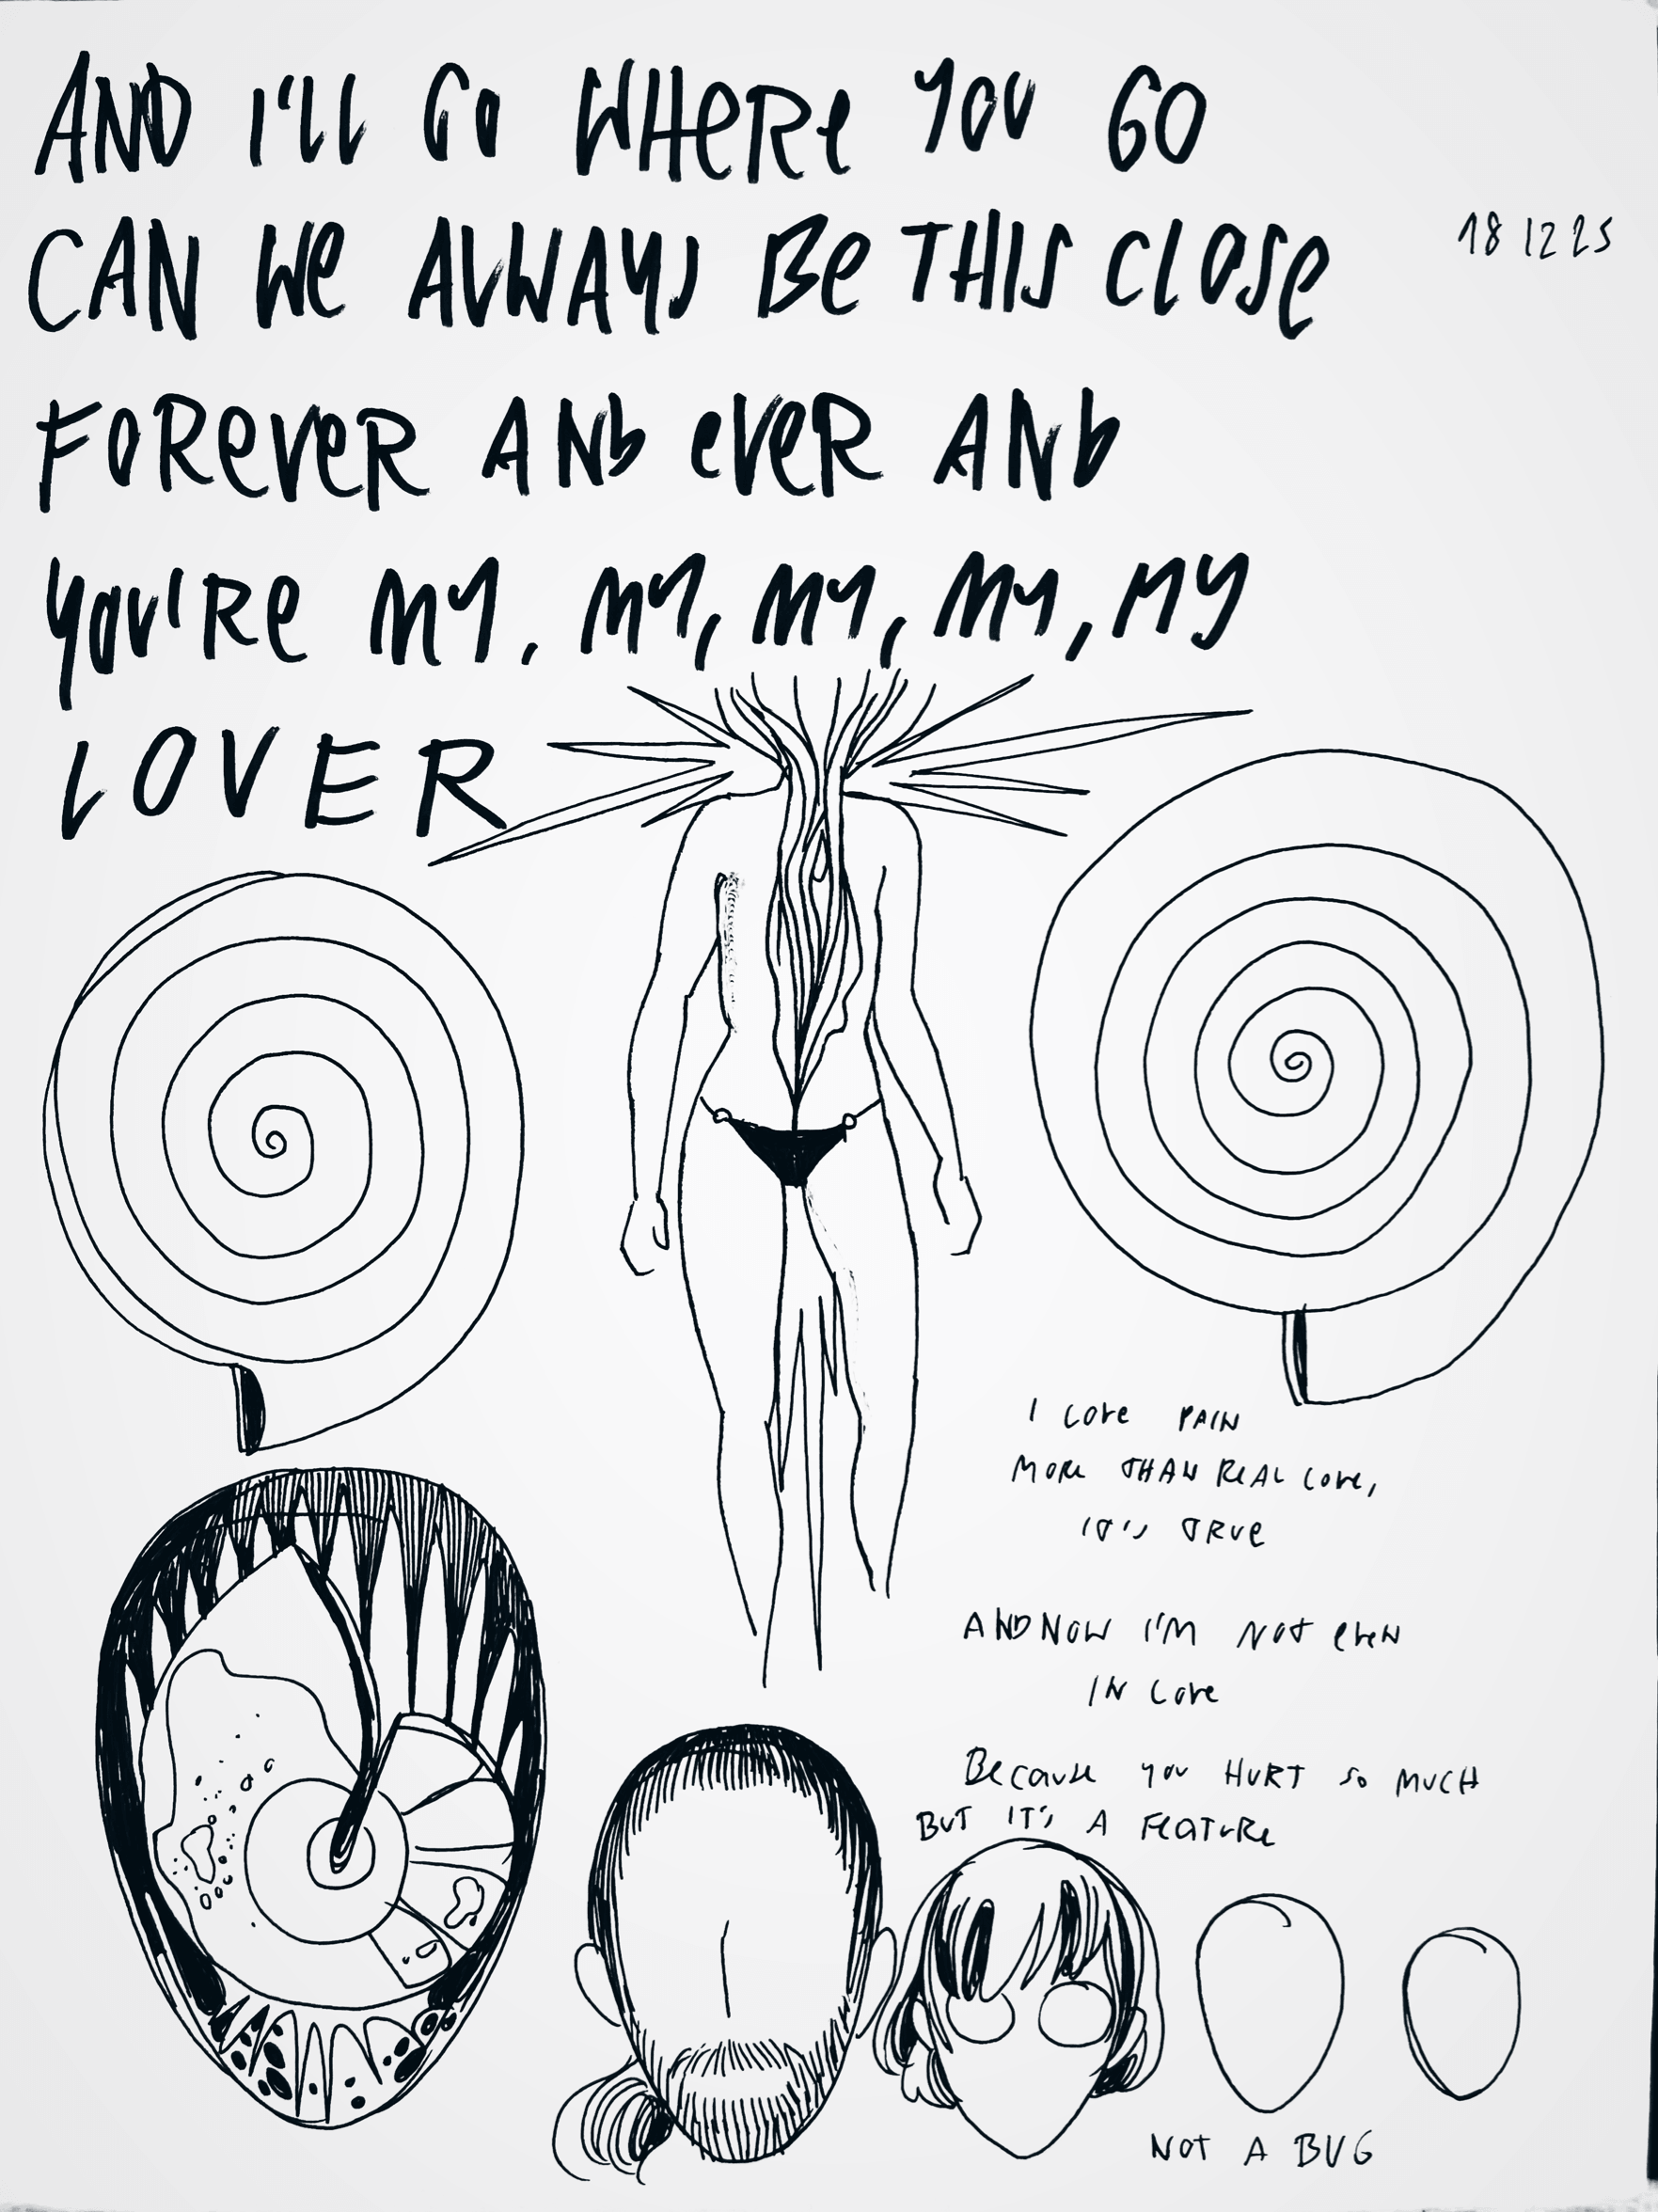 AND I'LL GO WHERE YOU GO
18 12 25
CAN WE ALWAYS BE THIS CLOSE
FOREVER AND EVER AND
YOU'RE MY, MY, MY, MY, MY
LOVER
I LOVE PAIN
MORE THAN REAL LOVE,
IT'S TRUE
AND NOW I'M NOT EVEN
IN LOVE
BECAUSE YOU HURT SO MUCH
BUT IT'S A FEATURE
NOT A BUG